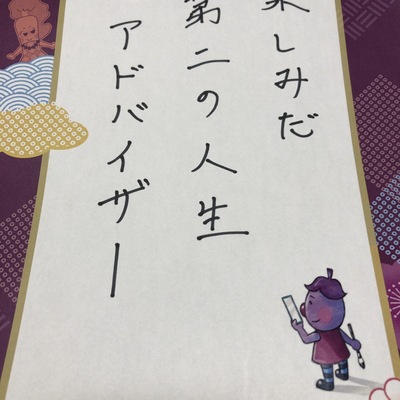 楽しみだ
第二の人生
アドバイザー